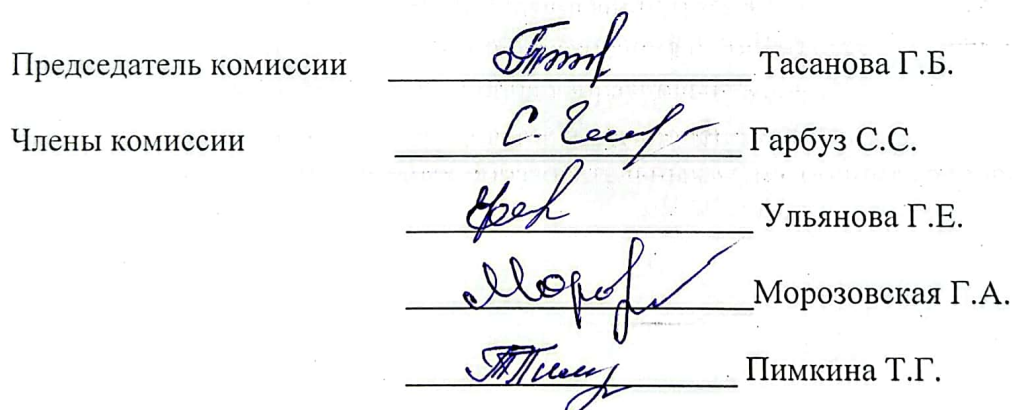 Председатель комиссии Тасанова Г.Б.
Члены комиссии Гарбуз С.С.
Ульянова Г.Е.
Морозовская Г.А.
Пимкина Т.Г.